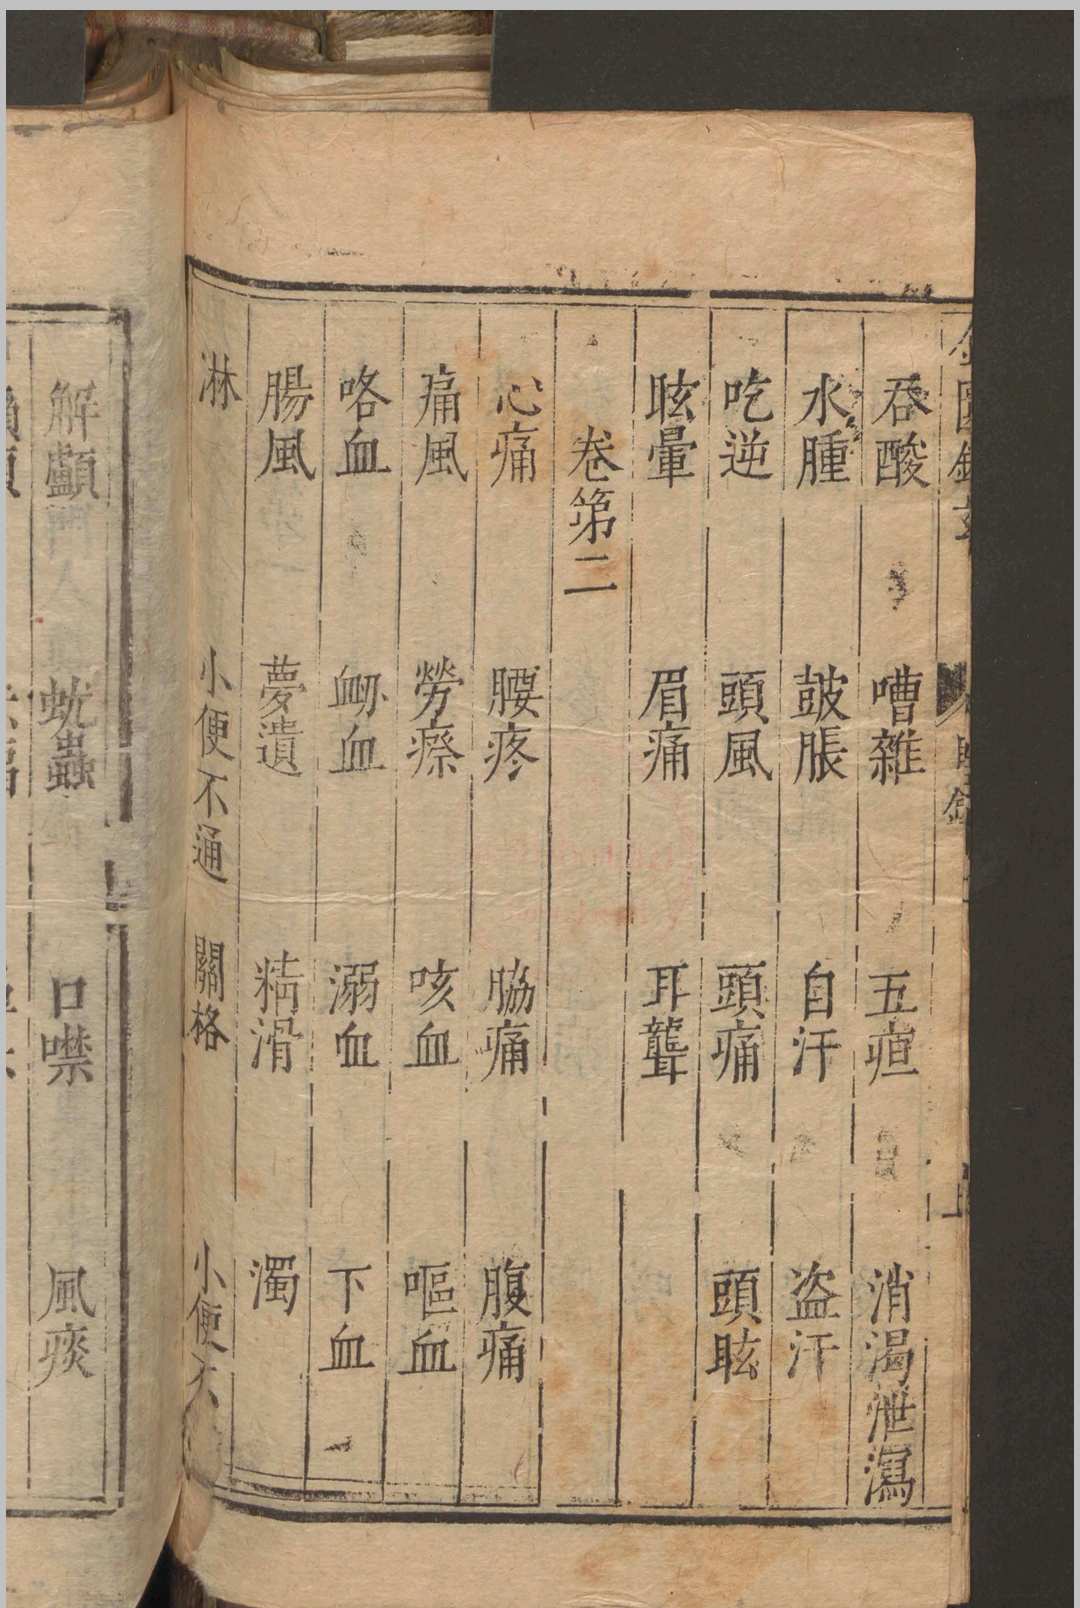 吞酸　嘈雜　五疸　消渴泄瀉
水腫　皷脹　自汗　盗汗
吃逆　頭風　頭痛　頭眩
眩暈　眉痛　耳聾
卷第二
心痛　腰疼　脇痛　腹痛
痛風　勞瘵　咳血　嘔血
咯血　衂血　溺血　下血
腸風　夢遺　精滑　濁
淋　小便不通　關格　小便不
解顱　蚘蟲　口噤　風痰